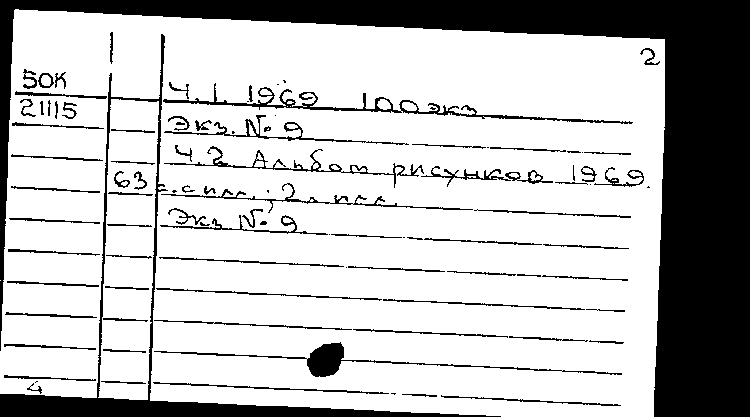 2
50К
21115
Ч.1. 1969 100экз.
Экз. № 9
Ч.2 Альбом рисунков 1969.
63 с.с илл.; 2 л илл.
Экз № 9
4